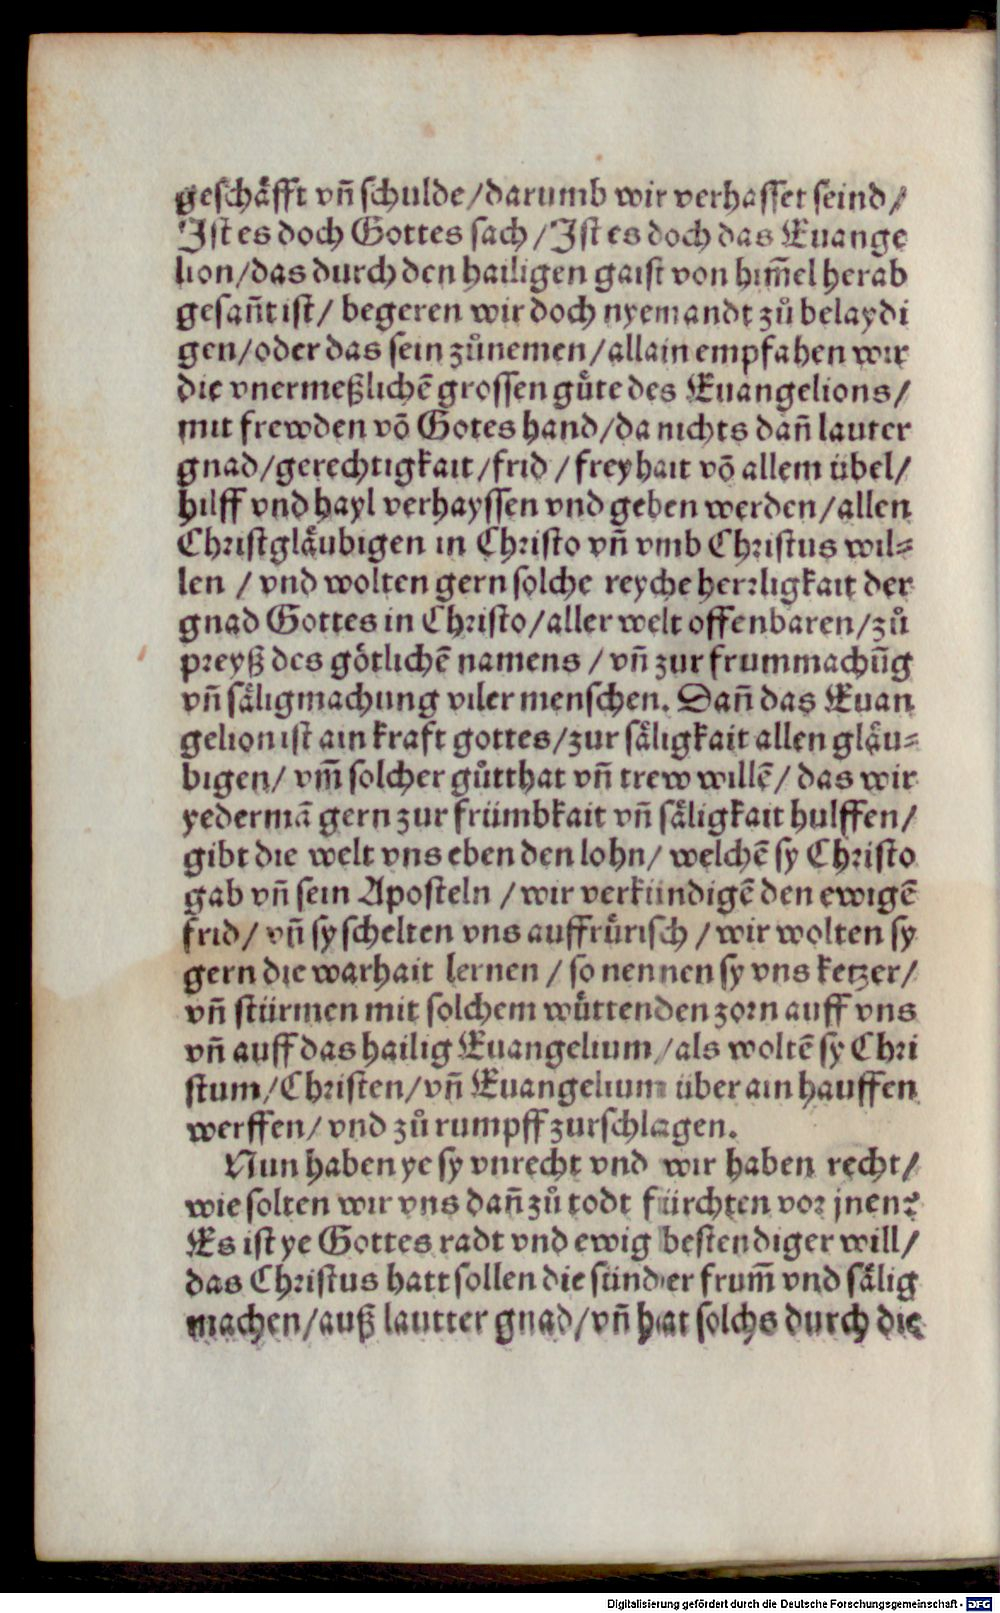 geschaͤfft vn̄ schulde/darumb wir verhasset seind/
Ist es doch Gottes sach/Ist es doch das Euange
lion/das durch den hailigen gaist von him̄el herab
gesan̄t ist/ begeren wir doch nyemandt zů belaydi
gen/oder das sein zůnemen/allain empfahen wir
die vnermeßlichē grossen guͤte des Euangelions/
mit frewden võ Gotes hand/da nichts dan̄ lauter
gnad/gerechtigkait/frid/freyhait võ allem übel/
hilff vnd hayl verhayssen vnd geben werden/allen
Christglaͤubigen in Christo vn̄ vmb Christus wil⸗
len / vnd wolten gern solche reyche herrligkait der
gnad Gottes in Christo/aller welt offenbaren/zů
preyß des goͤtlichē namens / vn̄ zur frummachūg
vn̄ saͤligmachung viler menschen. Dan̄ das Euan
gelion ist ain kraft gottes/zur saͤligkait allen glaͤu⸗
bigen/ vm̄ solcher guͤtthat vn̄ trew willē/ das wir
yedermā gern zur frümbkait vn̄ saͤligkait hulffen/
gibt die welt vns eben den lohn/ welchē sy Christo
gab vn̄ sein Aposteln / wir verkündigē den ewigē
frid/ vn̄ sy schelten vns auffruͤrisch / wir wolten sy
gern die warhait lernen / so nennen sy vns ketzer/
vn̄ stürmen mit solchem wuͤttenden zorn auff vns
vn̄ auff das hailig Euangelium/als woltē sy Chri
stum/Christen/vn̄ Euangelium über ain hauffen
werffen/ vnd zů rumpff zurschlagen.
Nun haben ye sy vnrecht vnd wir haben recht/
wie solten wir vns dan̄ zů todt fürchten vor jnen?
Es ist ye Gottes radt vnd ewig bestendiger will/
das Christus hatt sollen die sünder frum̄ vnd saͤlig
machen/auß lautter gnad/vn̄ hat solchs durch die
Digitalisierung gefördert durch die Deutsche Forschungsgemeinschaft - DFG